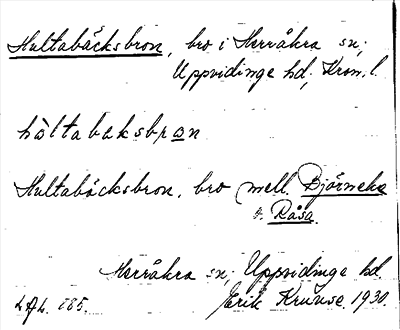 Hultabäcksbron, bro i Herråkra sn;
Uppvidinge hd, Kron. l.
hòltabaksbron
Hultabäcksbron, bro mell. Björneke
o. Råsa.
Herråkra sn; Uppvidinge hd.
LAL. 185. Erik Kruuse. 1930.